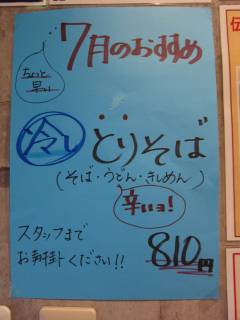 7月のおすすめ
ちょっと
辛い
冷し とりそば
(そば・うどん・きしめん)
辛いョ!
スタッフまで
お声掛けください!!
810円